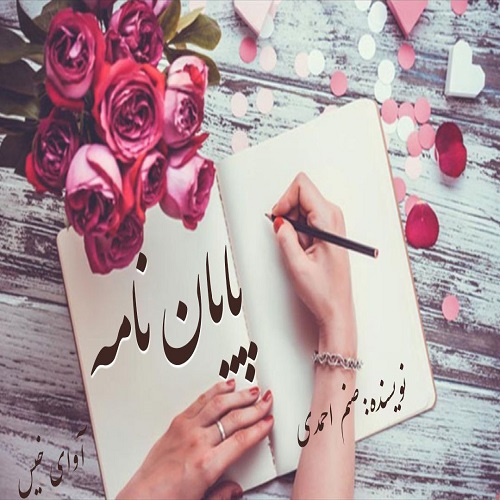 پایان نامه
نویسنده: صنم احمدی
آوای خیس